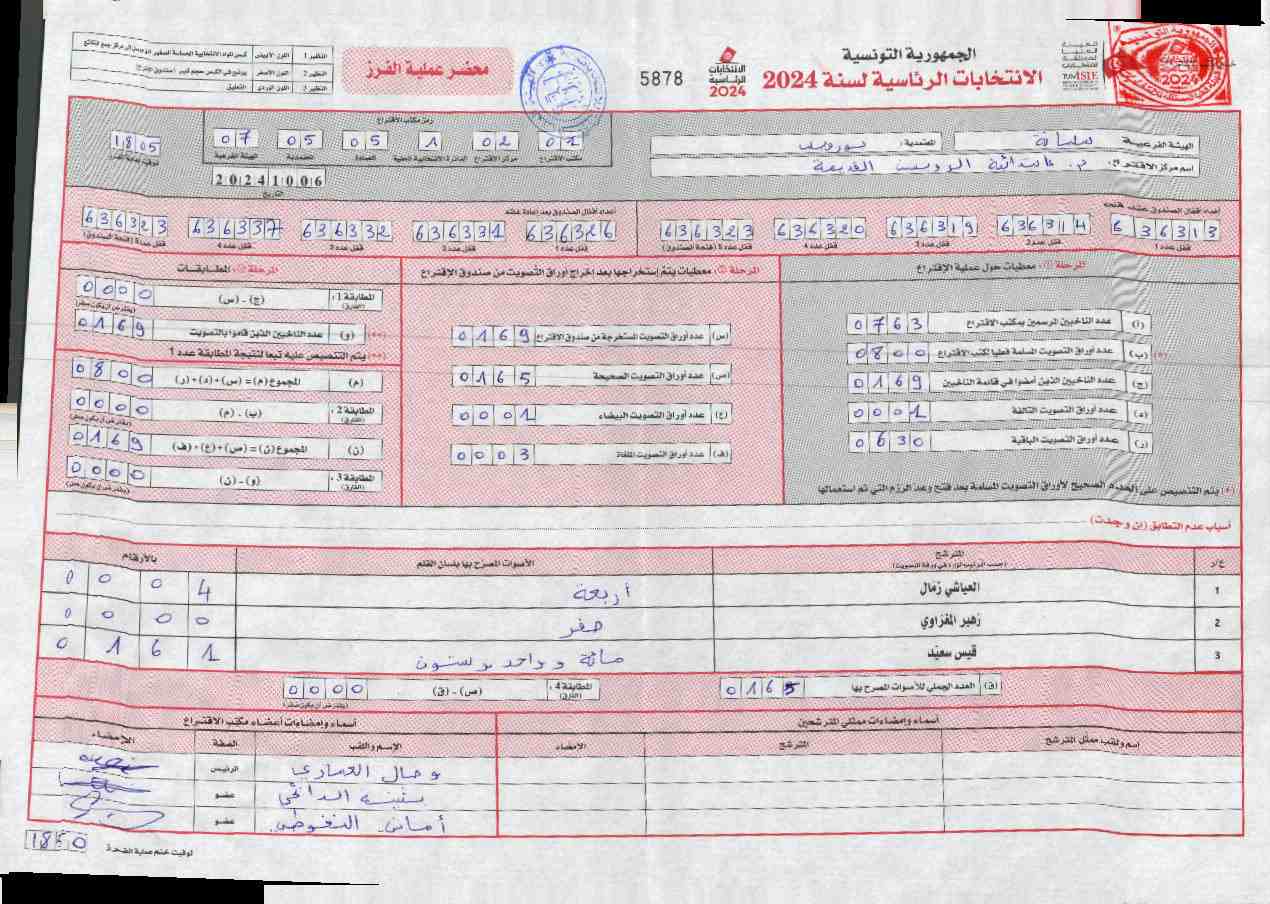 الجمهورية التونسية
الانتخابات الرئاسية لسنة 2024
الانتخابات الرئاسية 2024
5878
محضر عملية الفرز
النظير 1 اللون الأبيض
النظير 2 اللون الأصفر
النظير 3 اللون الوردي التعليق
الهيئة الفرعية سليانة المعتمدية: بورويس
اسم مركز الاقتراع:
رمز مكتب الاقتراع
01 02 1 05 05 07
مكتب الاقتراع مركز الاقتراع الدائرة الانتخابية المحلية العمادة المعتمدية الهيئة الفرعية
1805
توقيت بداية الفرز
20241006
التاريخ
أعداد أقفال الصندوق عند فتحه
636313 636314 636319 636320 636323
قفل عدد 1 قفل عدد 2 قفل عدد 3 قفل عدد 4 قفل عدد 5 (فتحة الصندوق)
أعداد أقفال الصندوق بعد إعادة غلقه
636326 636331 636332 636337 636323
قفل عدد 1 قفل عدد 2 قفل عدد 3 قفل عدد 4 قفل عدد 5 (فتحة الصندوق)
المرحلة ①: معطيات حول عملية الاقتراع
(أ) عدد الناخبين المرسمين بمكتب الاقتراع 0763
(ب) عدد أوراق التصويت المسلمة فعليا لمكتب الاقتراع 0800
(ج) عدد الناخبين الذين أمضوا في قائمة الناخبين 0169
(د) عدد أوراق التصويت التالفة 0001
(ر) عدد أوراق التصويت الباقية 0630
(*) يتم التنصيص على العدد الصحيح لأوراق التصويت المسلمة بعد فتح وعد الرزم التي تم استعمالها
المرحلة ②: معطيات يتم إستخراجها بعد إخراج أوراق التصويت من صندوق الإقتراع
(س) عدد أوراق التصويت المستخرجة من صندوق الاقتراع 0169
(ص) عدد أوراق التصويت الصحيحة 0165
(ع) عدد أوراق التصويت البيضاء 0001
(ف) عدد أوراق التصويت الملغاة 0003
المرحلة ③: المطابقات
المطابقة 1: (الفارق) (ج) - (س) 0000
(يفترض أن يكون صفر)
(**) (و) عدد الناخبين الذين قاموا بالتصويت 0169
(**) يتم التنصيص عليه تبعا لنتيجة المطابقة عدد 1
(م) المجموع (م) = (س) + (د) + (ر) 0800
المطابقة 2: (الفارق) (ب) - (م) 0000
(يفترض أن يكون صفر)
(ن) المجموع (ن) = (ص) + (ع) + (ف) 0169
المطابقة 3: (الفارق) (و) - (ن) 0000
(يفترض أن يكون صفر)
أسباب عدم التطابق (إن وجدت)
ع/ر المترشح الأصوات المصرح بها بلسان القلم بالأرقام
(حسب الترتيب الوارد في ورقة التصويت)
1 العياشي زمال أربعة 0004
2 زهير المغزاوي صفر 0000
3 قيس سعيد مائة وواحد وستون 0161
(ق) العدد الجملي للأصوات المصرح بها 0165
المطابقة 4: (الفارق) (ص) - (ق) 0000
(يفترض أن يكون صفر)
أسماء وإمضاءات ممثلي المترشحين
اسم ولقب ممثل المترشح المترشح الإمضاء
أسماء وإمضاءات أعضاء مكتب الاقتراع
الإسم واللقب الصفة الإمضاء
الرئيس
عضو
أماني عضو
توقيت ختم عملية الفرز